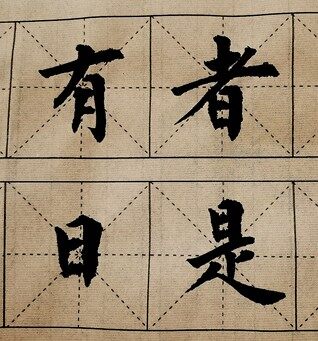 有者
日是